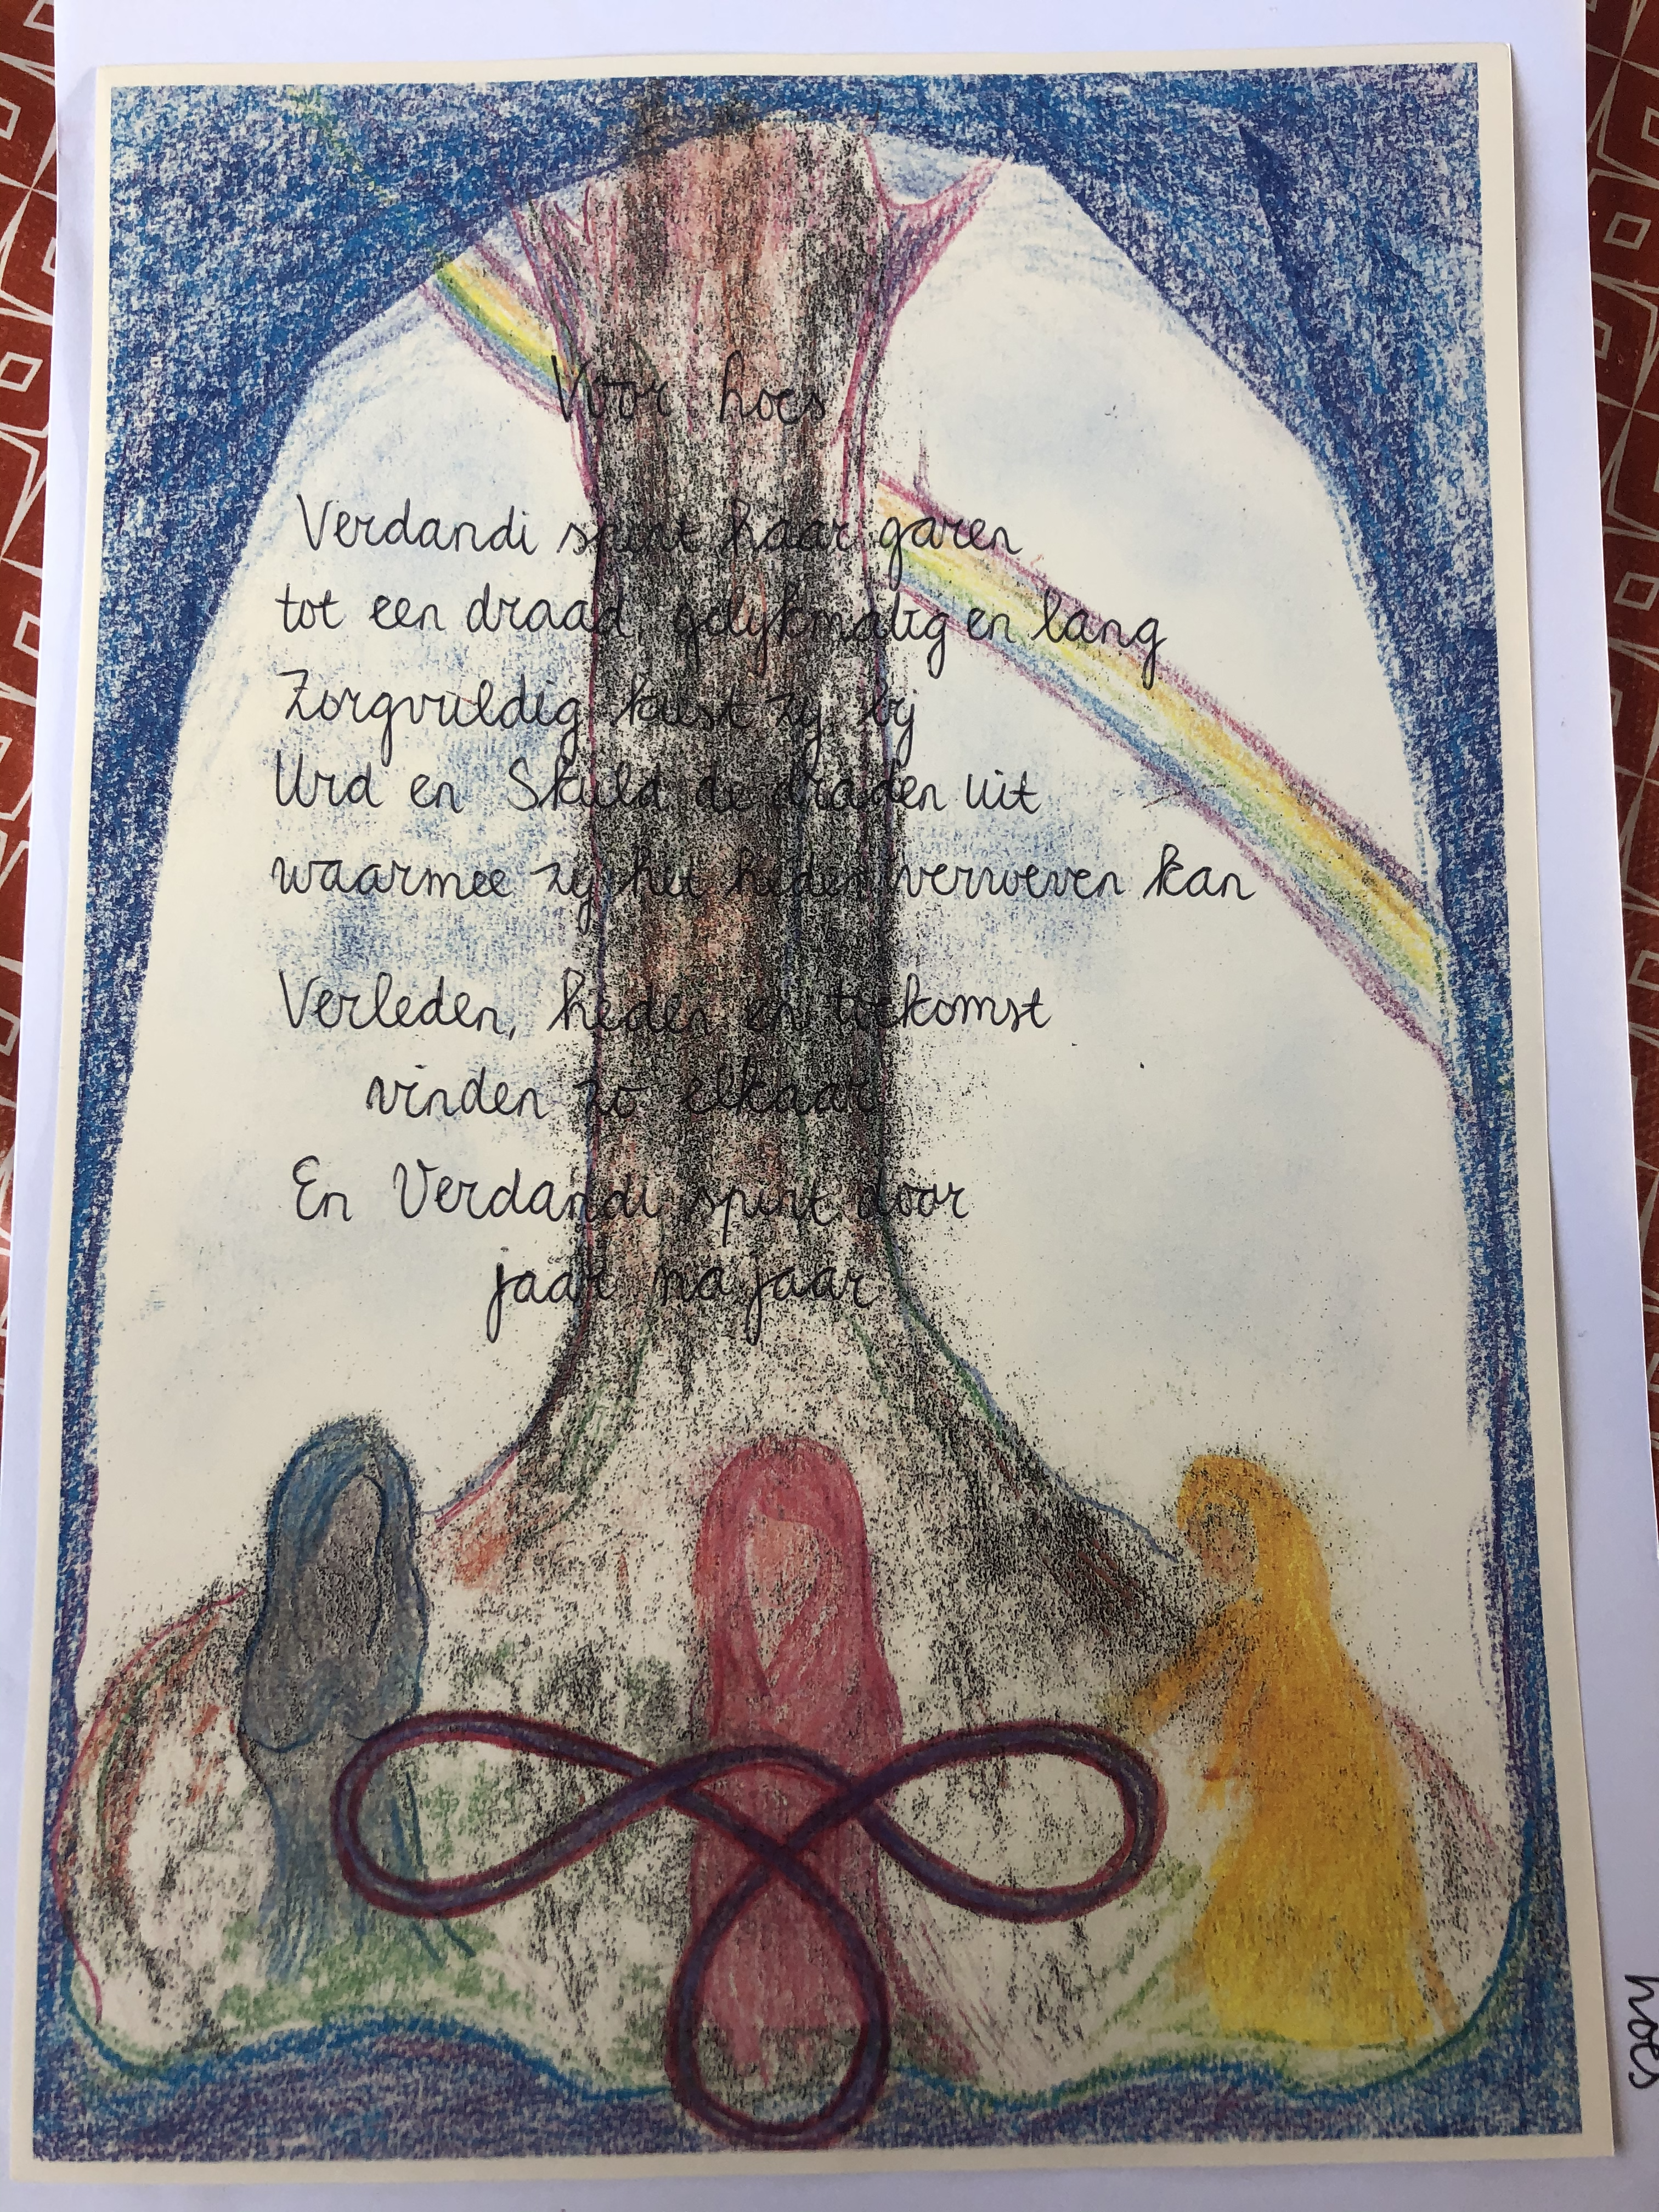 Voor hoes
Verdandi spint haar garen
tot een draad, gelijkmatig en lang
Zorgvuldig kiest zij bij
Urd en Skuld de draden uit
waarmee zij het heden verweven kan
Verleden, heden en toekomst
vinden zo elkaar
En Verdandi spint door
jaar na jaar
hoes